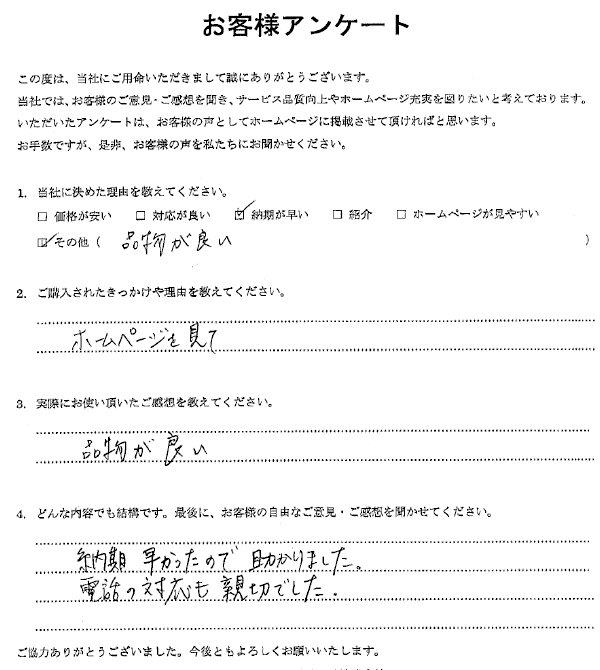 お客様アンケート
この度は、当社にご用命いただきまして誠にありがとうございます。
当社では、お客様のご意見・ご感想を聞き、サービス品質向上やホームページ充実を図りたいと考えております。
いただいたアンケートは、お客様の声としてホームページに掲載させて頂ければと思います。
お手数ですが、是非、お客様の声を私たちにお聞かせください。
1. 当社に決めた理由を教えてください。
□ 価格が安い □ 対応が良い ☑ 納期が早い □ 紹介 □ ホームページが見やすい
☑ その他（ 品物が良い ）
2. ご購入されたきっかけや理由を教えてください。
ホームページを見て
3. 実際にお使い頂いたご感想を教えてください。
品物が良い
4. どんな内容でも結構です。最後に、お客様の自由なご意見・ご感想を聞かせてください。
納期 早かったので 助かりました。
電話の対応も 親切でした.
ご協力ありがとうございました。今後ともよろしくお願いいたします。